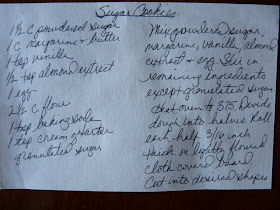 Sugar Cookies
1 1/2 C powdered sugar
1 C margarine & butter
1 tsp vanilla
1/2 tsp almond extract
1 egg
2 1/2 C flour
1 tsp baking soda
1 tsp cream of tarter
granulated sugar
Mix powdered sugar,
margarine, vanilla, almond
extract & egg. Stir in
remaining ingredients
except granulated sugar
Heat oven to 375 Devide
dough into halves. Roll
each half 3/16 inch
thick on lightly floured
cloth covered board
Cut into desired shapes